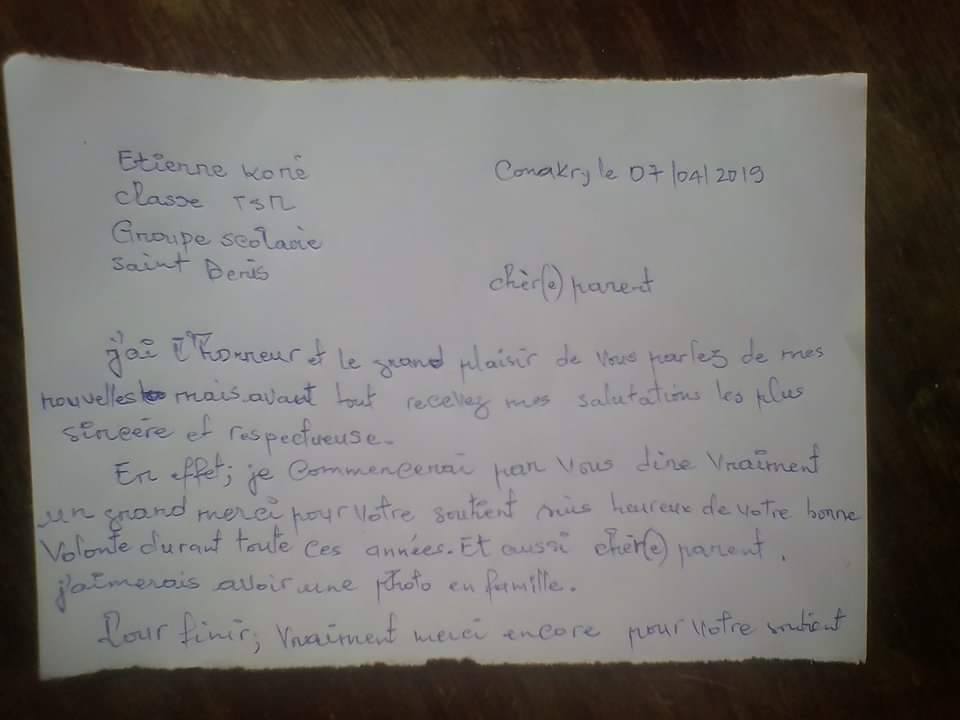 Etienne Koné
Conakry le 07/04/2019
classe TSM
Groupe scolacie
Saint Denis
chèr(e) parent
j'ai l'honneur et le grand plaisir de vous parlez de mes
nouvelles mais avant tout recevez mes salutations les plus
sincère et respectueuse.
En effet; je commencerai par vous dire vraiment
un grand merci pour votre soutient mis heureux de votre bonne
volonte durant toute ces années. Et aussi chèr(e) parent.
j'aimerais avoir une photo en famille.
Pour finir; vraiment merci encore pour votre soutient